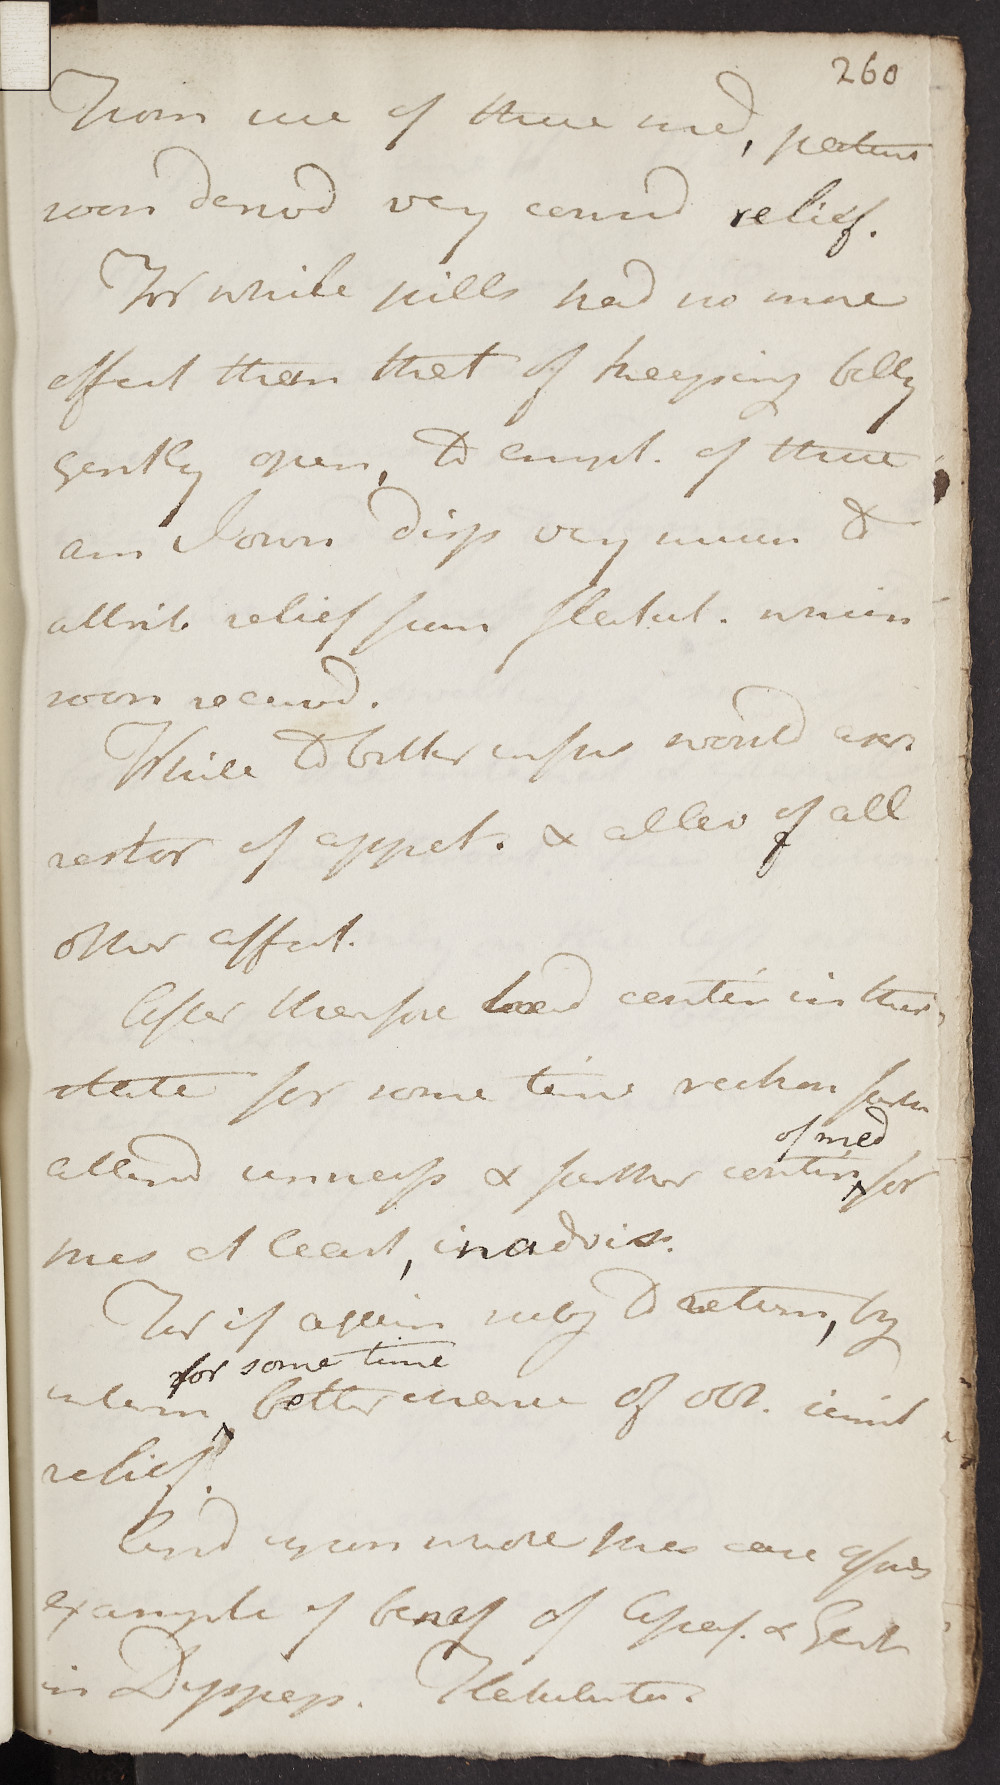 260
From use of these med, patient
soon derivd very consid relief.
For while pills had no more
effect than that of keeping belly
gently open, To empl. of these
am I own disp very much to
attrib relief from flatul. which
soon receivd.
While To bitter infus would ascr
restor of appet. & allev of all
other affect.
After therefore had contin in this
state for some time reckon farther
attend unnecess & farther contin of med for
pres at least, inadvis.
For if again subj To return, by
interm for some time better chance of obt. simil
relief.
And upon whole this case affords
example of benef of Asaf. &
in Dyspeps. Flatulenta.